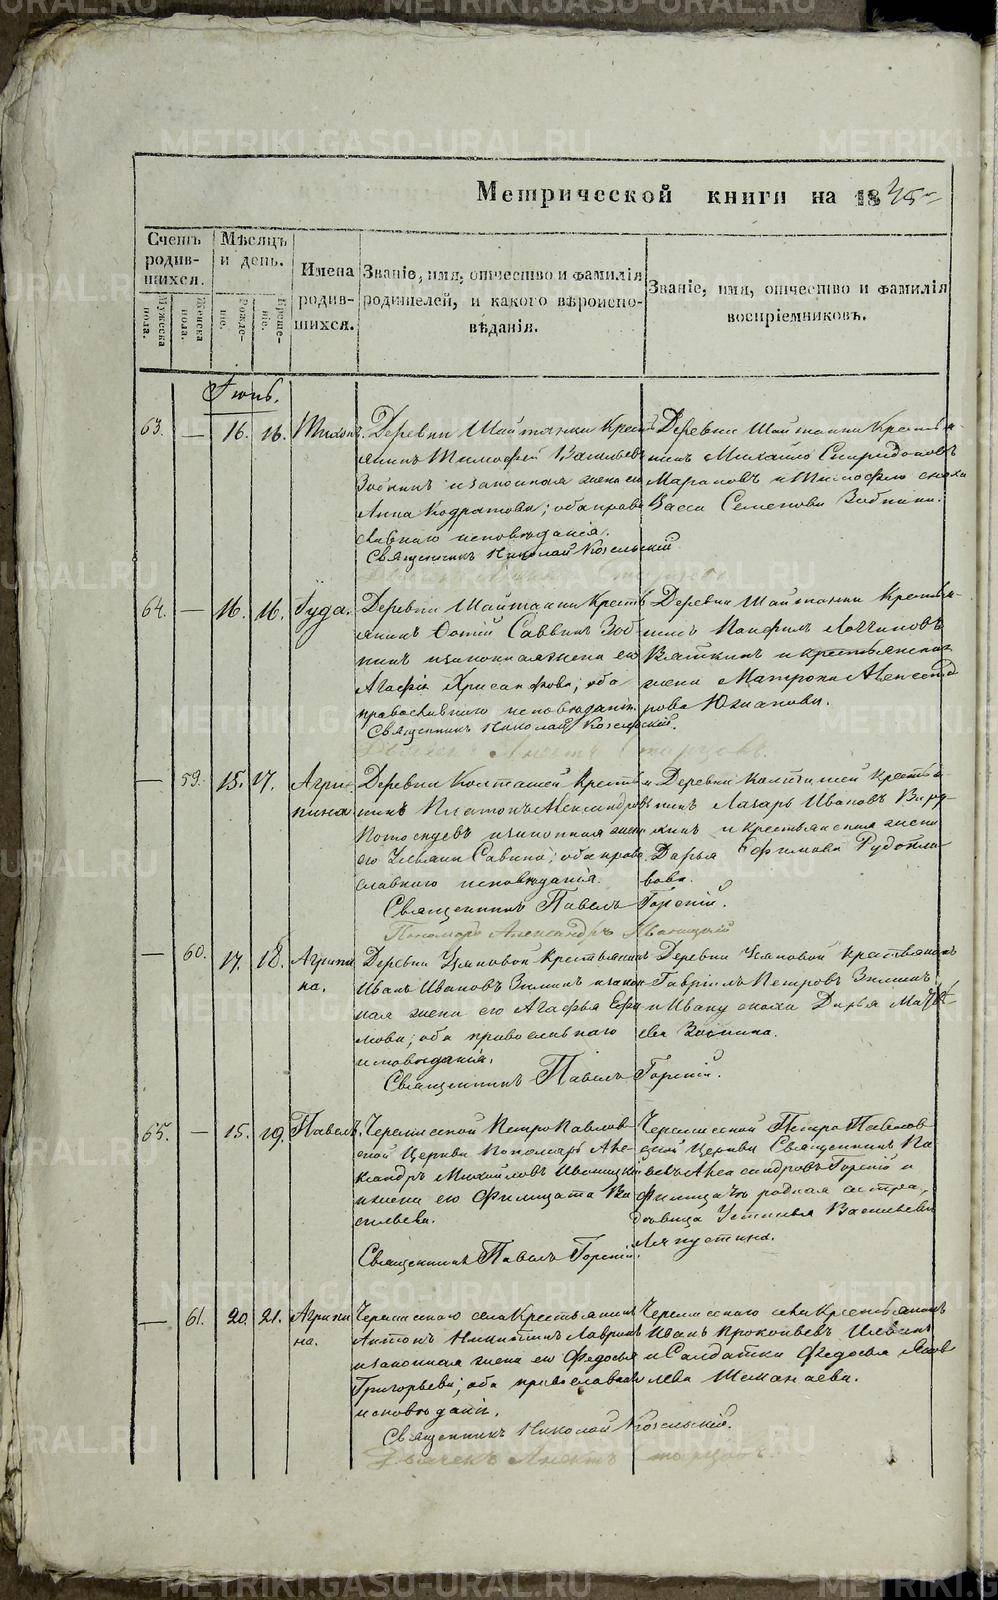 METRIKI.GASO-URAL.RU
Метрической книги на 1845
Счетъ родившихся.
Мужеска пола.
Женска пола.
Мѣсяцъ и день.
Рожденіе.
Крещеніе.
Имена родившихся.
Званіе, имя, отчество и фамилія родителей, и какого вѣроисповѣданія.
Званіе, имя, отчество и фамилія воспріемниковъ.
Іюнь.
63. — 16. 16. Тихонъ.
Деревни Шайтанки Крестъ
янинъ Тимофей Васильевъ
Зобнинъ и законная жена его
Анна Кодратова; оба право
славнаго исповѣданія.
Священникъ Николай Козельскій
Деревни Шайтанки Крестья
нинъ Михайло Спиридоновъ
и Тимофею сноха
Васса Семенова Зобнина.
64. — 16. 16. Іуда.
Деревни Шайтанки Кресть
янинъ Фотій Саввинъ Зоб
нинъ и законная жена его
Агафія Хрисанфова; оба
православнаго исповѣданія.
Священникъ Николай Козельскій.
Деревни Шайтанки Крестья
нинъ Панфилъ Логиновъ
Вяткинъ и крестьянская
жена Матрона Александ
рова Южакова.
— 59. 15. 17. Агрип
пина.
Деревни Колташей Крестья
нинъ Платонъ Александровъ
Потоскуевъ и законная жена
его Ульяна Савина; оба право
славнаго исповѣданія.
Священникъ Павелъ Горскій.
Пономарь Александръ Ивановскій
Деревни Колташей Крестья
нинъ Лазарь Ивановъ
и крестьянская жена
Дарья Ефимова
— 60. 17. 18. Агрипи
на.
Деревни Узяновой Крестьянинъ
Иванъ Ивановъ Зиминъ и закон
ная жена его Агафья Ефи
мова; оба православнаго
исповѣданія.
Священникъ Павелъ Горскій.
Деревни Узяновой Крестьянинъ
Гавріилъ Петровъ Зиминъ
и Ивану сноха Дарья
Зимина.
65. — 15. 19. Павелъ.
Черемисской Петро Павлов
ской Церкви Пономарь Але
ксандръ Михайловъ
и жена его Филицата Ва
сильева.
Священникъ Павелъ Горскій.
Черемисской Петро Павлов
ской Церкви Священникъ Па
велъ Александровъ Горскій и
Филицаты родная сестра,
вдовица Устинья Васильева
Ляпустина.
— 61. 20. 21. Агрипи
на.
Черемисскаго села Крестьянинъ
Антонъ Никитинъ Лавринъ
и законная жена его Федосья
Григорьева; оба православнаго
исповѣданія.
Священникъ Николай Козельскій.
Черемисскаго села Крестьянинъ
Иванъ Прокопьевъ
и Солдатка Федосья Яков
лева Шеманаева.